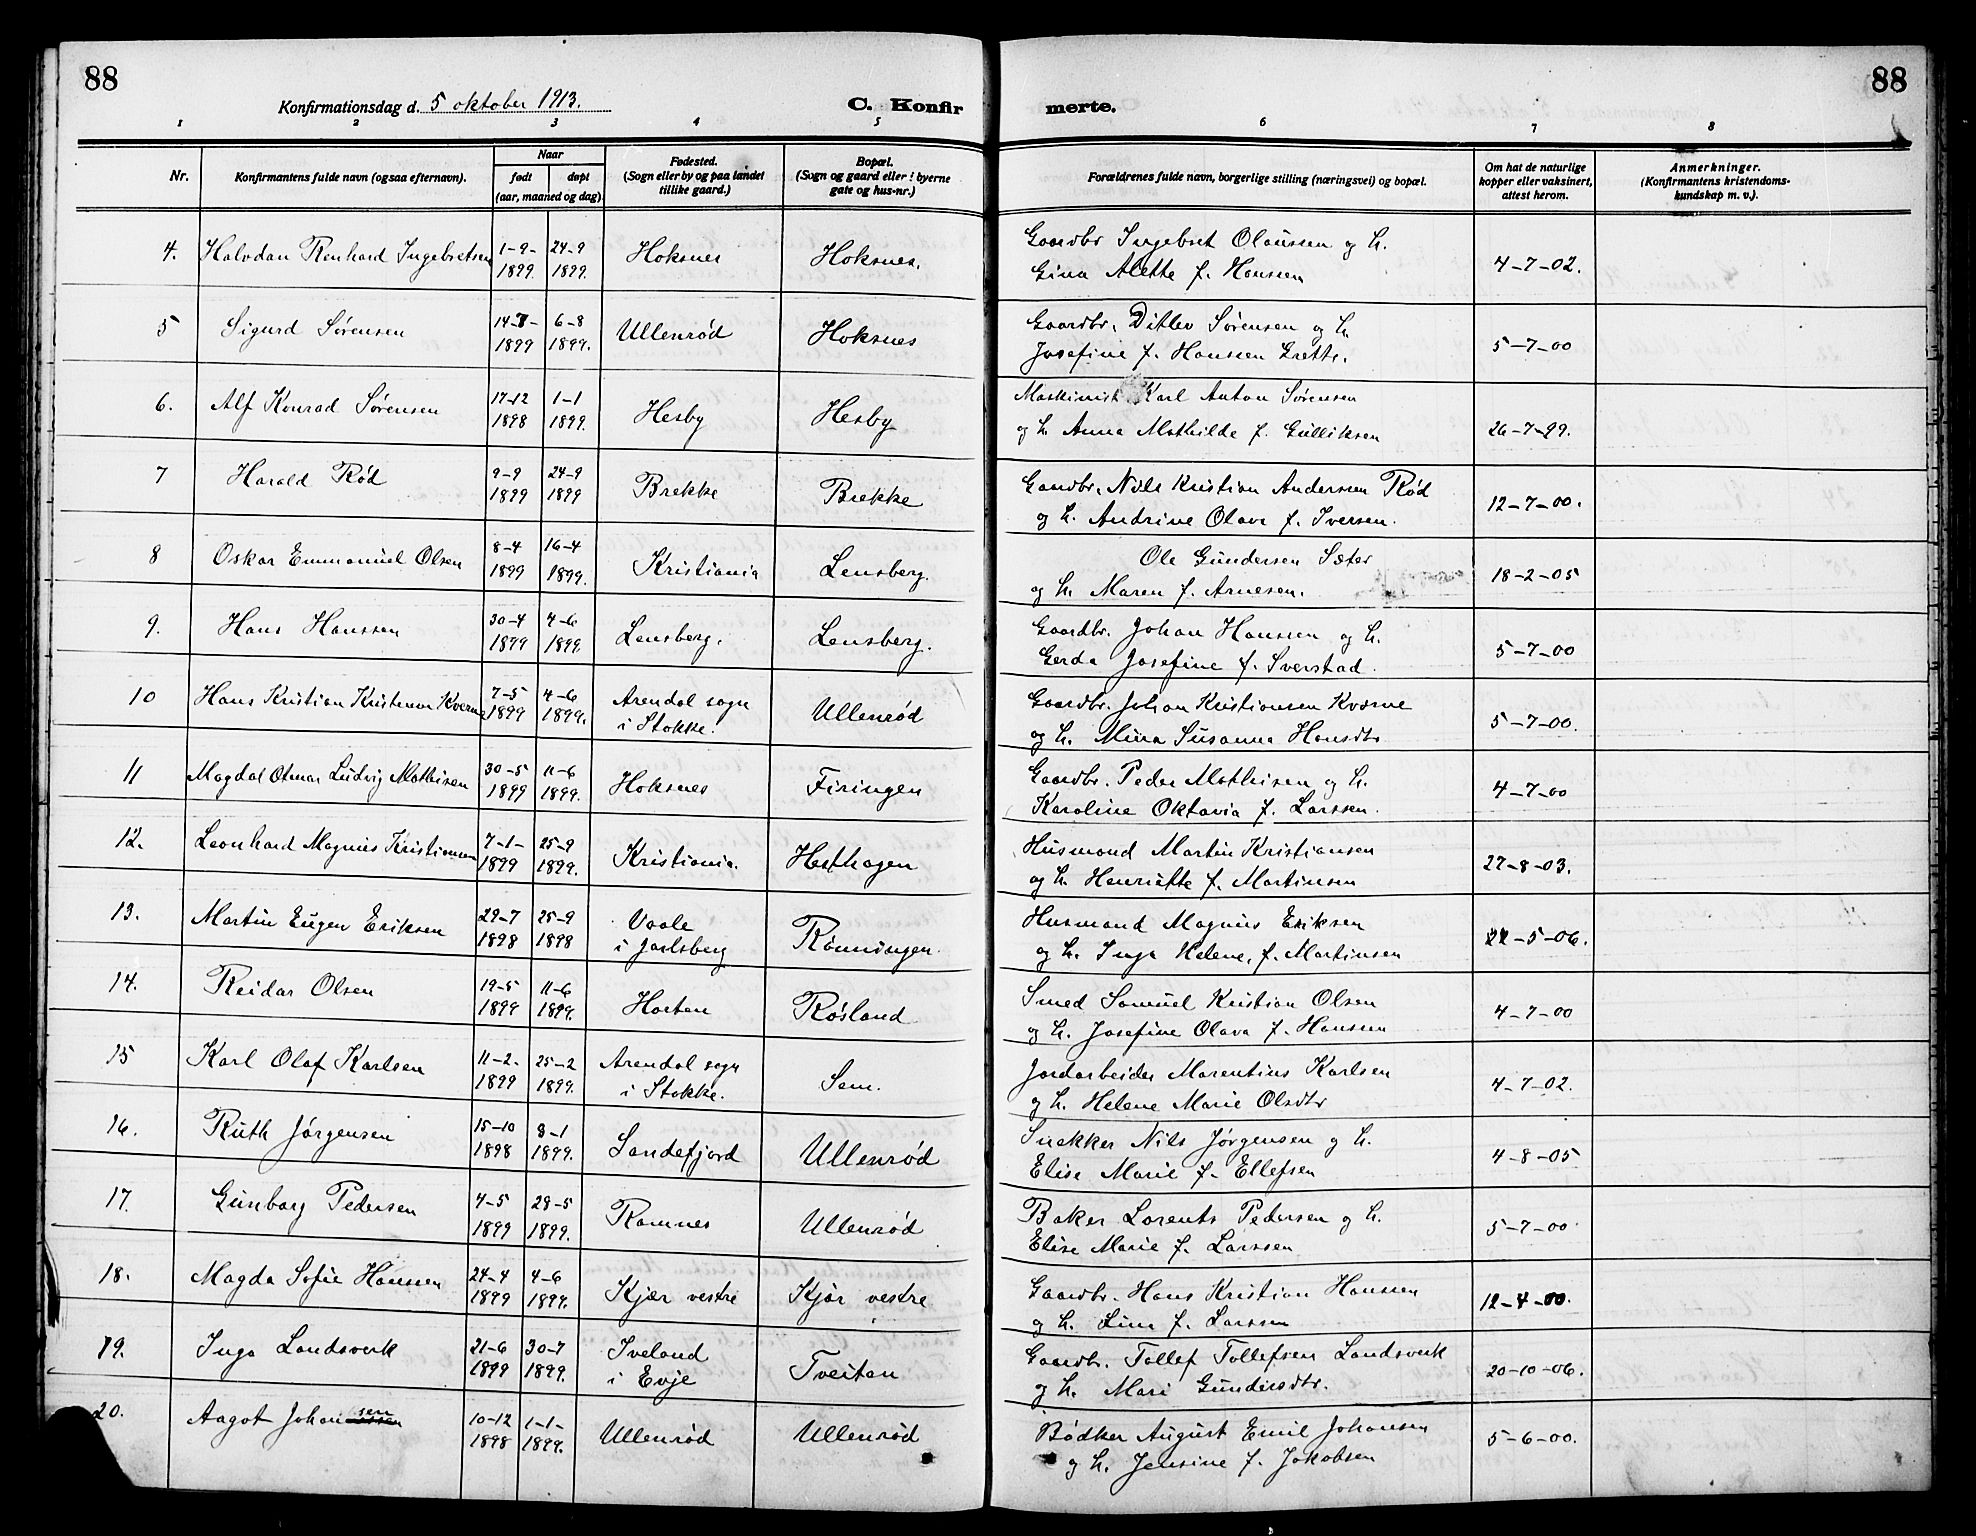 88
88
Konfirmationsdag d. 5 oktober 1913.
C. Konfir merte.
1 2 3 4 5 6 7 8
Nr.
Konfirmantens fulde navn (ogsaa efternavn).
Naar
født
døpt
(aar, maaned og dag)
Fødested.
(Sogn eller by og paa landet
tillike gaard.)
Bopæl.
(Sogn og gaard eller i byerne
gate og hus-nr.)
Forældrenes fulde navn, borgerlige stilling (næringsvei) og bopæl.
Om hat de naturlige
kopper eller vaksinert,
attest herom.
Anmerkninger.
(Konfirmantens kristendoms-
kundskap m. v.).
4. Halvdan Renhard Ingebretsen 1-9- 24-9 Hoksnes Hoksnes. Gaardbr Ingebret Olaussen og h.
1899 1899. Gina Alette f. Hanssen 4-7-02.
5 Sigurd Sørensen 14-7- 6-8 Ullenrød Hoksnes Gaardbr. Ditlev Sørensen og h.
1899 1899. Josefine f. Hanssen Grette. 5-7-00
6. Alf Konrad Sørensen 17-12 1-1 Hesby Hesby Maskinist Karl Anton Sørensen
1898 1899. og h. Anna Mathilde f. Gulliksen 26-7-99.
7 Harald Rød 9-9 24-9 Brekke Brekke Gaardbr. Nils Kristian Anderssen Rød
1899 1899 og h. Andrine Olava f. Iversen. 12-7-00.
8 Oskar Emmanuel Olsen 8-4 16-4 Kristiania Lensberg. Ole Gundersen Sæter
1899 1899. og h. Maren f. Arnesen. 18-2-05
9. Hans Hanssen 30-4 4-6 Lensberg. Lensberg. Gaardbr. Johan Hanssen og h.
1899 1899. Gerda Josefine f. Sverstad. 5-7-00
10 Hans Kristian Kristensen Kverne 7-5 4-6 Arendal sogn Ullenrød Gaardbr. Johan Kristiansen Kværne
1899 1899. i Stokke. og h. Mina Susanna Hansdtr 5-7-00.
11 Magdal Otmar Ludvig Mathisen 30-5 11-6 Hoksnes Firingen Gaardbr. Peder Mathisen og h.
1899 1899. Karoline Oktavia f. Larssen. 4-7-00
12. Leonhard Magnus Kristiansen 7-1- 25-9 Kristiania. Hesthagen Husmand Martin Kristiansen
1899 1899. og h. Henriette f. Martinsen 27-8-03.
13. Martin Eugen Eriksen 29-7 25-9 Vaale Rønningen. Husmand Magnus Eriksen
1898 1898 i Jarlsberg og h. Inga Helene, f. Martinsen 22-5-06.
14. Reidar Olsen 19-5 11-6 Horten Røsland Smed Samuel Kristian Olsen
1899 1899. og h. Josefine Olava f. Hanssen 4-7-00
15 Karl Olaf Karlsen 11-2- 25-2 Arendal sogn Sem. Jordarbeider Marentius Karlsen
1899 1899. i Stokke. og h. Helene Marie Olsdtr 4-7-02.
16. Ruth Jørgensen 15-10 8-1 Sandefjord Ullenrød Snekker Nils Jørgensen og h.
1898 1899. Elise Marie f. Ellefsen 4-8-05
17. Gunborg Pedersen 4-5 28-5 Ramnes Ullenrød Baker Lorents Pedersen og h.
1899 1899. Elise Marie f. Larssen 5-7-00
18. Magda Sofie Hanssen 24-4 4-6 Kjær vestre Kjær vestre Gaardbr. Hans Kristian Hanssen
1899 1899. og h. Lina f. Larssen 12-4-00.
19. Inga Landsverk 21-6 30-7 Iveland Tveitan Gaardbr. Tollef Tollefsen Landsverk
1899 1899. i Evje og h. Mari Gundersdtr. 20-10-06.
20. Aagot Johansen 10-12 1-1- Ullenrød Ullenrød Bødker August Emil Johansen
1898 1899. og h. Jensine f. Jakobsen 5-6-00.